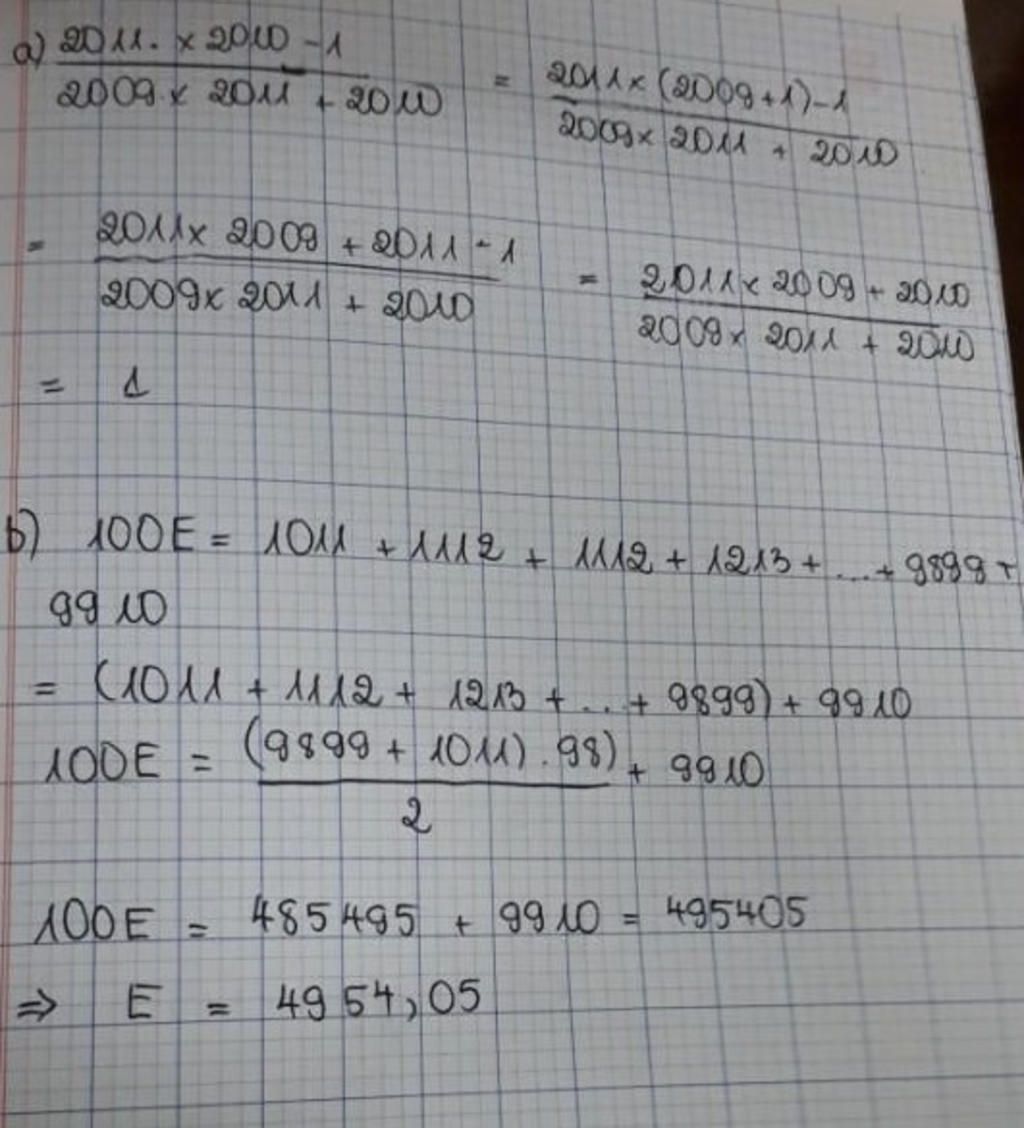 a) 2011. × 2010 - 1 / 2009 × 2011 + 2010 = 2011 × (2009 + 1) - 1 / 2009 × 2011 + 2010
= 2011 × 2009 + 2011 - 1 / 2009 × 2011 + 2010 = 2011 × 2009 + 2010 / 2009 × 2011 + 2010
= 1
b) 100E = 1011 + 1112 + 1112 + 1213 + ... + 9899 +
9910
= (1011 + 1112 + 1213 + ... + 9899) + 9910
100E = (9899 + 1011) . 98) / 2 + 9910
100E = 485495 + 9910 = 495405
⇒ E = 4954,05